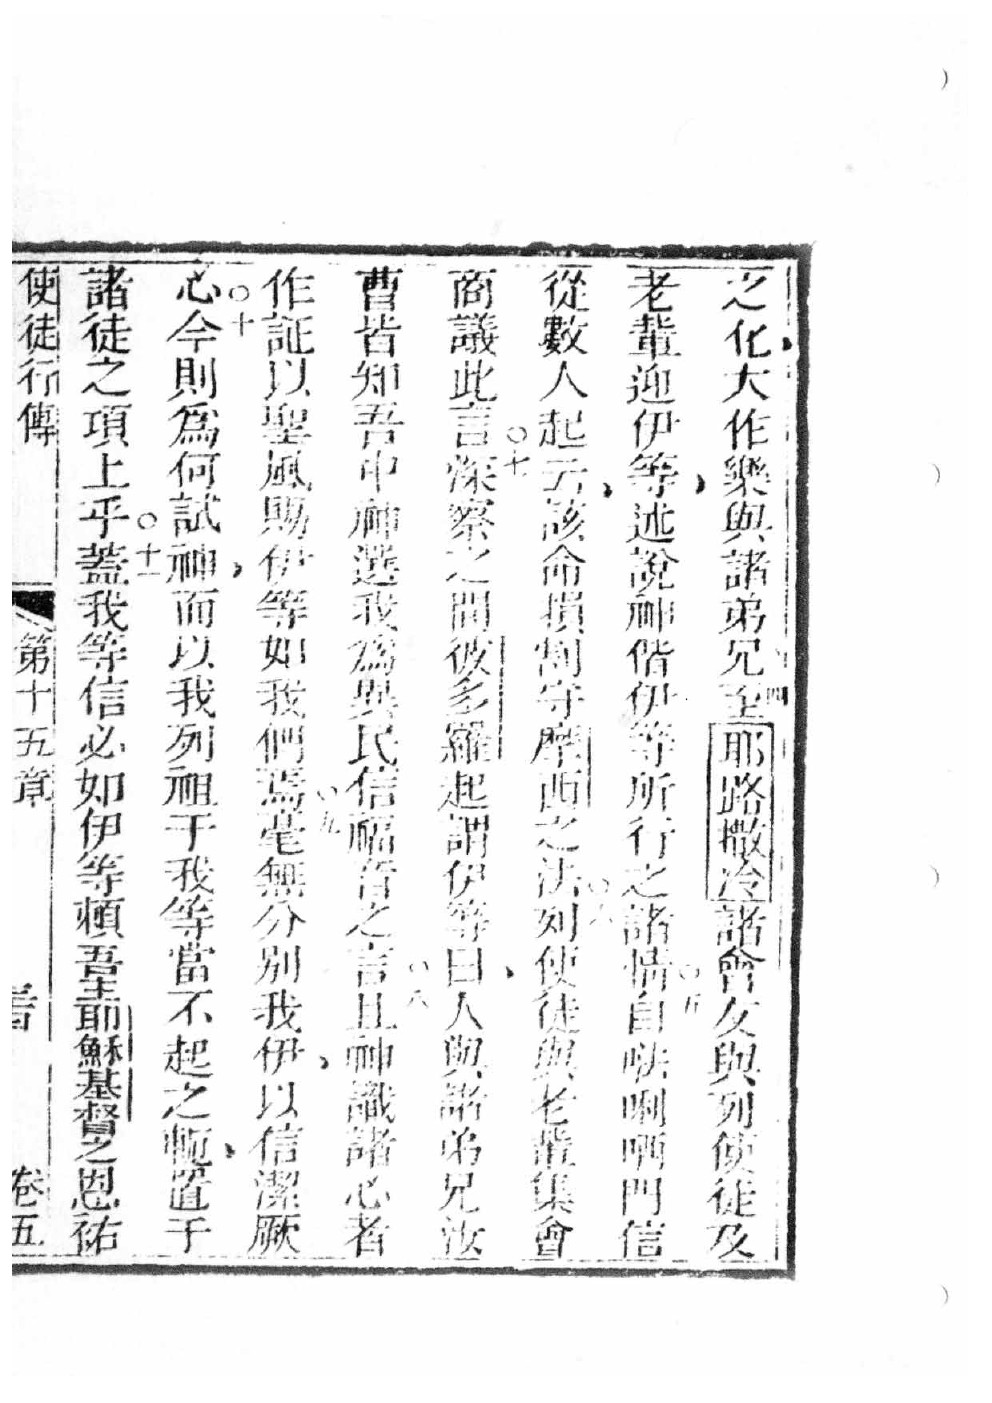 之化大作樂與諸弟兄四至耶路撒冷諸會友與列使徒及
老輩迎伊等述說神偕伊等所行之諸情○五自𠵽唎哂門信
從數人起云該命損割守摩西之法○六列使徒與老輩集會
商議此言○七深察之間彼多羅起謂伊等曰人與諸弟兄汝
曹皆知吾中神選我為異民信福音之言○八且神識諸心者
作証以聖風賜伊等如我們焉○九毫無分別我伊以信潔厥
心○十今則為何試神而以我列祖于我等當不起之軛置于
諸徒之項上乎○十一蓋我等信必如伊等賴吾主耶穌基督之恩祐
使徒行傳 第十五章 卷五